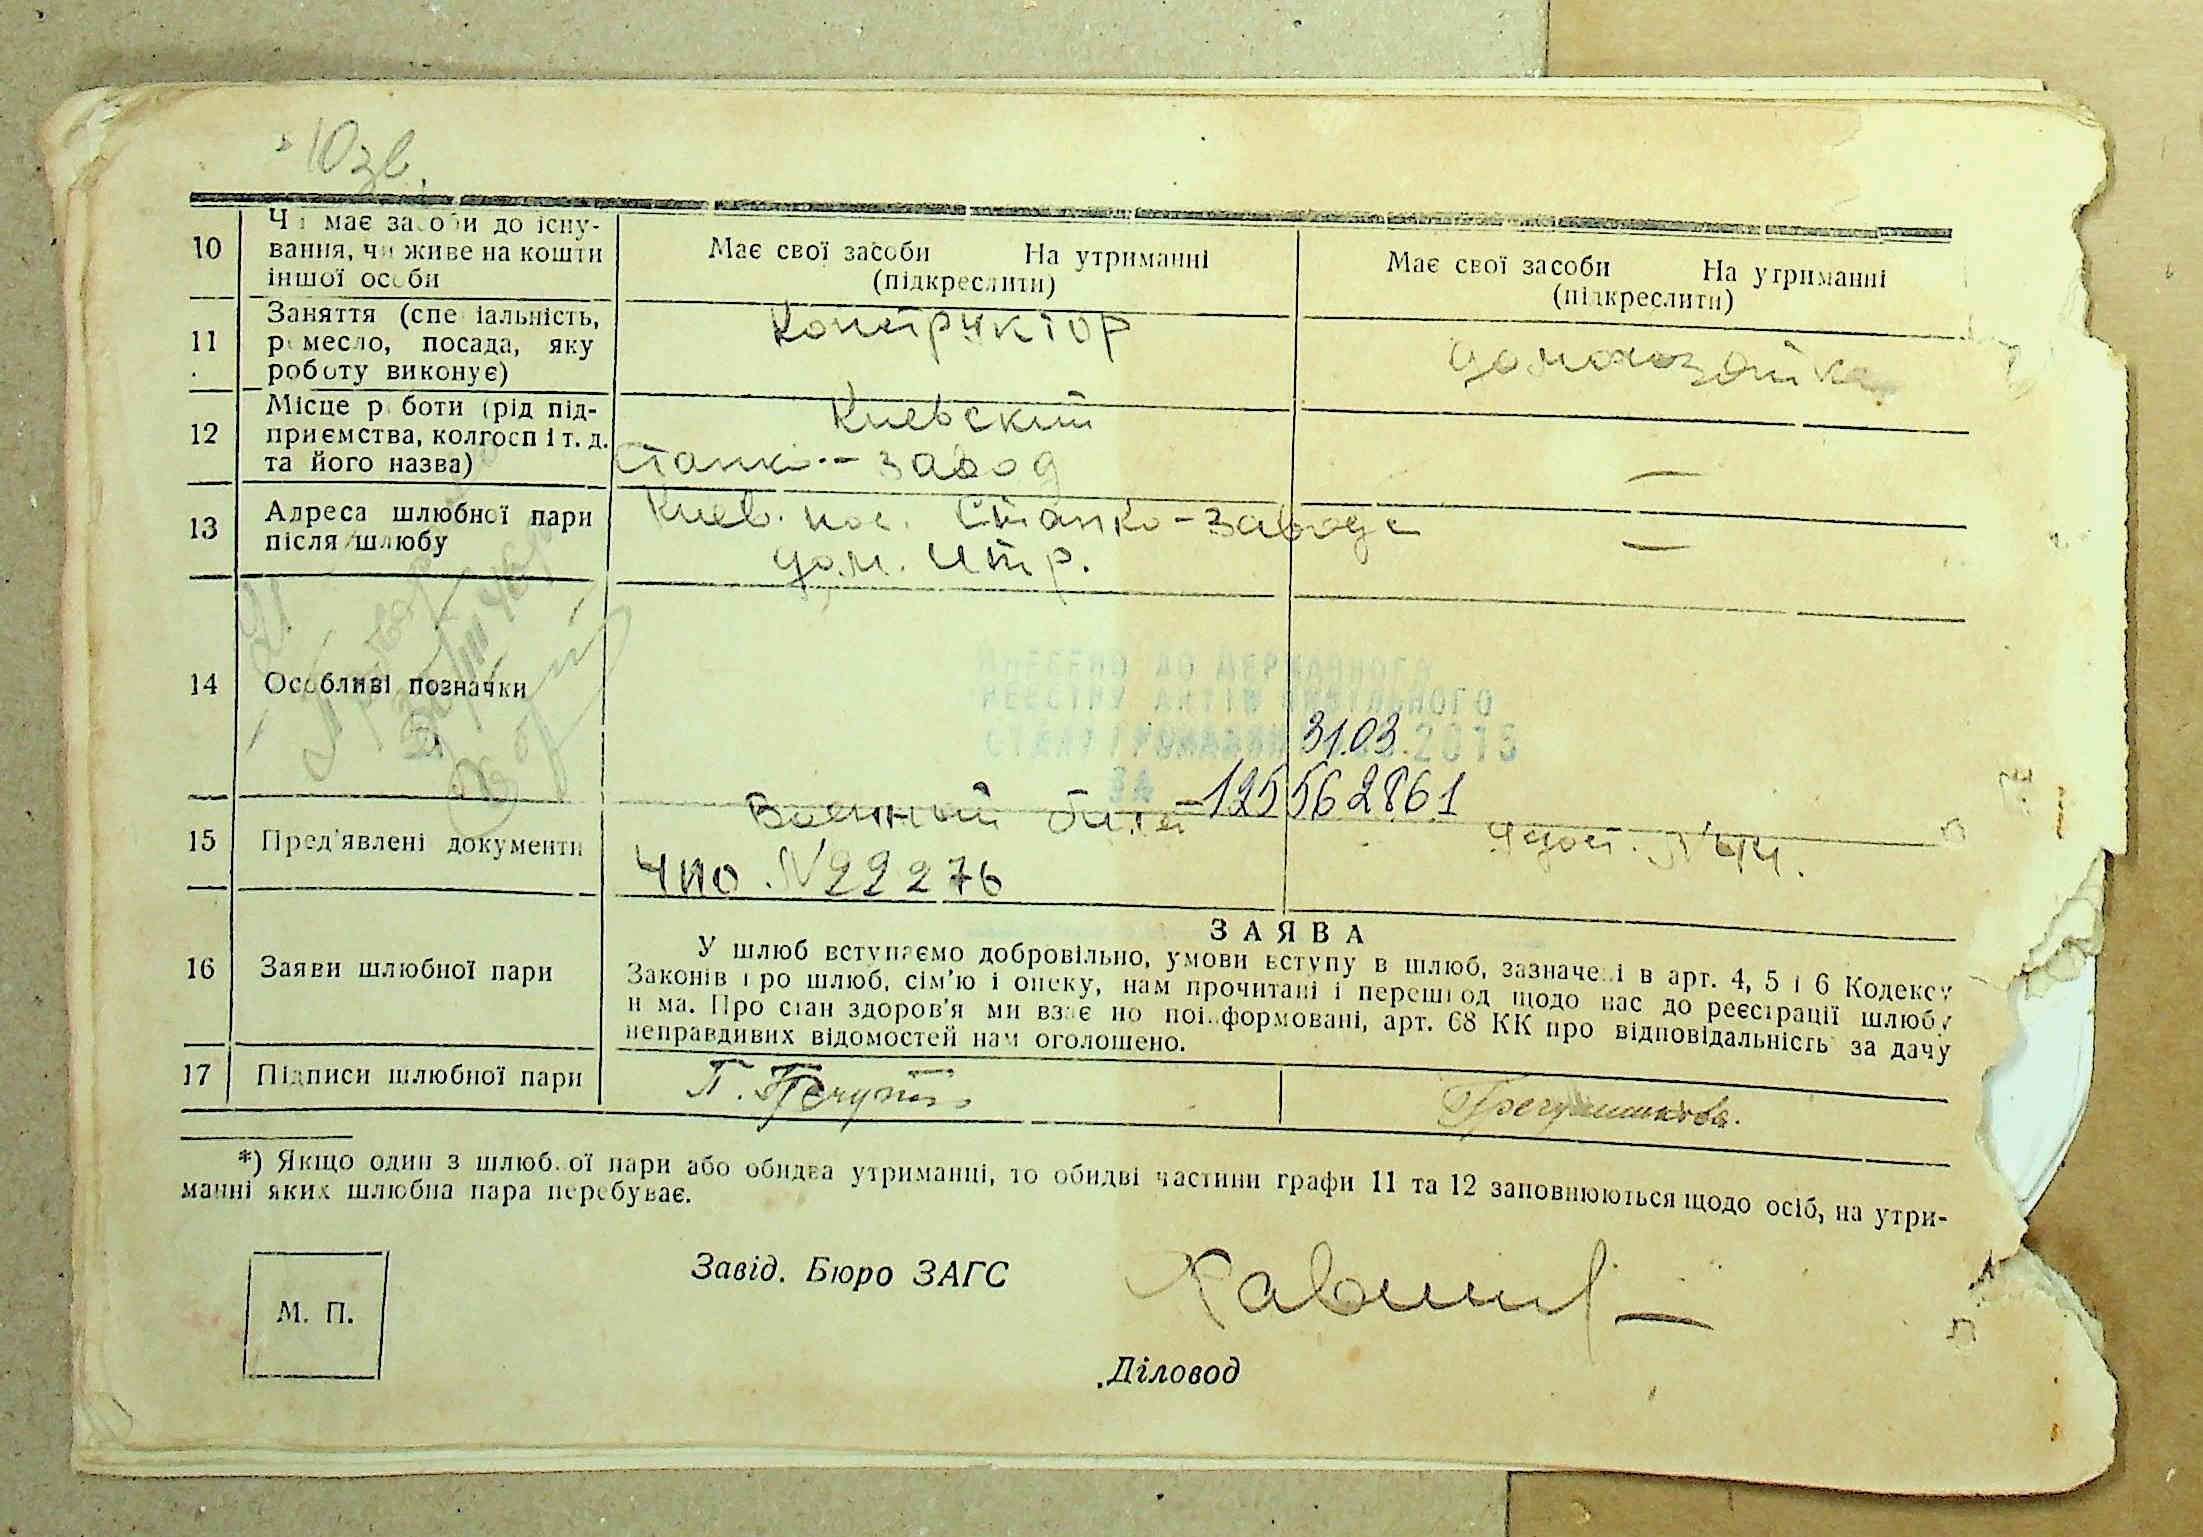 10 зв.
10 Чи має засоби до існу-
вання, чи живе на кошти
іншої особи
Має свої засоби На утриманні
(підкреслити)
Має свої засоби На утриманні
(підкреслити)
11 Заняття (спеціальність,
ремесло, посада, яку
роботу виконує)
Конструктор
домохозяйка
12 Місце роботи (рід під-
приємства, колгосп і т. д.
та його назва)
Киевский
Станко-завод
—
13 Адреса шлюбної пари
після шлюбу
Киев. пос. Станко-завода
дом. Итр.
—
14 Особливі позначки
ВНЕСЕНО ДО ДЕРЖАВНОГО
РЕЄСТРУ АКТІВ ЦИВІЛЬНОГО
СТАНУ ГРОМАДЯН 31.03.2015
15 Пред'явлені документи
Военный билет -125562861
ЧПО №22276
удост. №
16 Заяви шлюбної пари
ЗАЯВА
У шлюб вступаємо добровільно, умови вступу в шлюб, зазначені в арт. 4, 5 і 6 Кодексу
Законів про шлюб, сім'ю і опеку, нам прочитані і перешкод щодо нас до реєстрації шлюбу
нема. Про стан здоров'я ми взаємно поінформовані, арт. 68 КК про відповідальність за дачу
неправдивих відомостей нам оголошено.
17 Підписи шлюбної пари
*) Якщо один з шлюбної пари або обидва утриманці, то обидві частини графи 11 та 12 заповнюються щодо осіб, на утри-
манні яких шлюбна пара перебуває.
М. П.
Завід. Бюро ЗАГС
Діловод